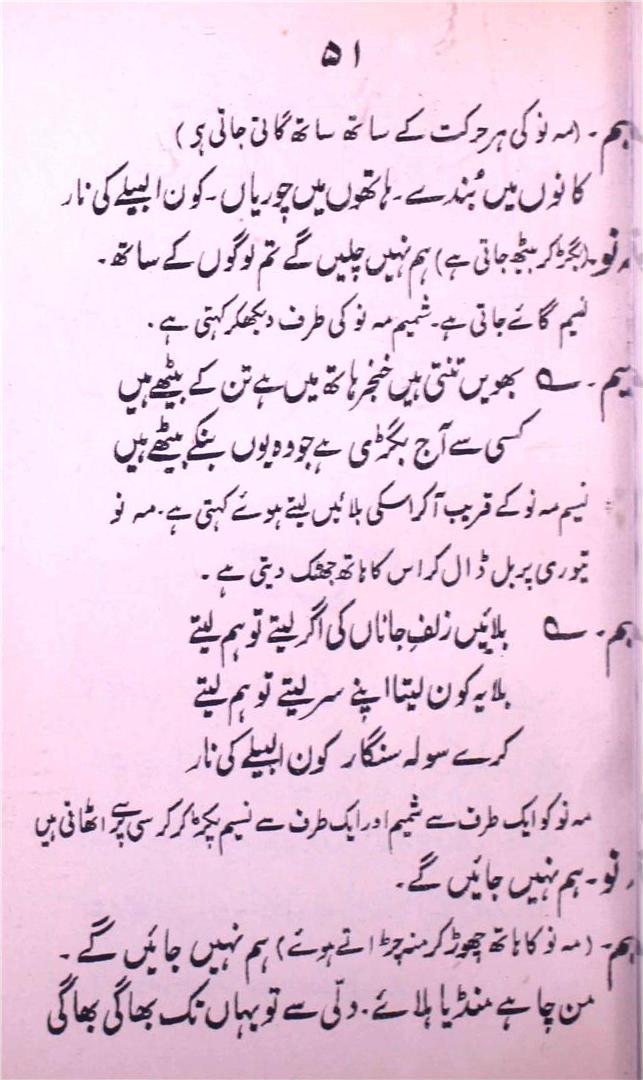 ۵۱
ہم ۔ (مہ نو کی ہر حرکت کے ساتھ ساتھ گاتی جاتی ہی)
کانوں میں بُندے ۔ ہاتھوں میں چوریاں ۔ کون البیلے کی نار
نو ۔ (بگڑ کر بیٹھ جاتی ہے) ہم نہیں چلیں گے تم لوگوں کے ساتھ ۔
نسیم گائے جاتی ہے ۔ شمیم مہ نو کی طرف دیکھکر کہتی ہے ۔
یم ۔ ؎ بھویں تنتی ہیں خنجر ہاتھ میں ہے تن کے بیٹھے ہیں
کسی سے آج بگڑی ہے جو وہ یوں بنکے بیٹھے ہیں
نسیم مہ نو کے قریب آکر اسکی بلائیں لیتے ہوئے کہتی ہے ۔ مہ نو
تیوری پر بل ڈال کر اس کا ہاتھ جھٹک دیتی ہے ۔
ہم ۔ ؎ بلائیں زلفِ جاناں کی اگر لیتے تو ہم لیتے
بلا یہ کون لیتا اپنے سر لیتے تو ہم لیتے
کرے سولہ سنگار کون البیلے کی نار
مہ نو کو ایک طرف سے شمیم اور ایک طرف سے نسیم پکڑ کر کرسی پر سے اٹھاتی ہیں
نو ۔ ہم نہیں جائیں گے ۔
ہم ۔ (مہ نو کا ہاتھ چھوڑ کر منہ چڑاتے ہوئے) ہم نہیں جائیں گے ۔
من چاہے منڈیا ہلائے ۔ دلّی سے تو یہاں تک بھاگی بھاگی